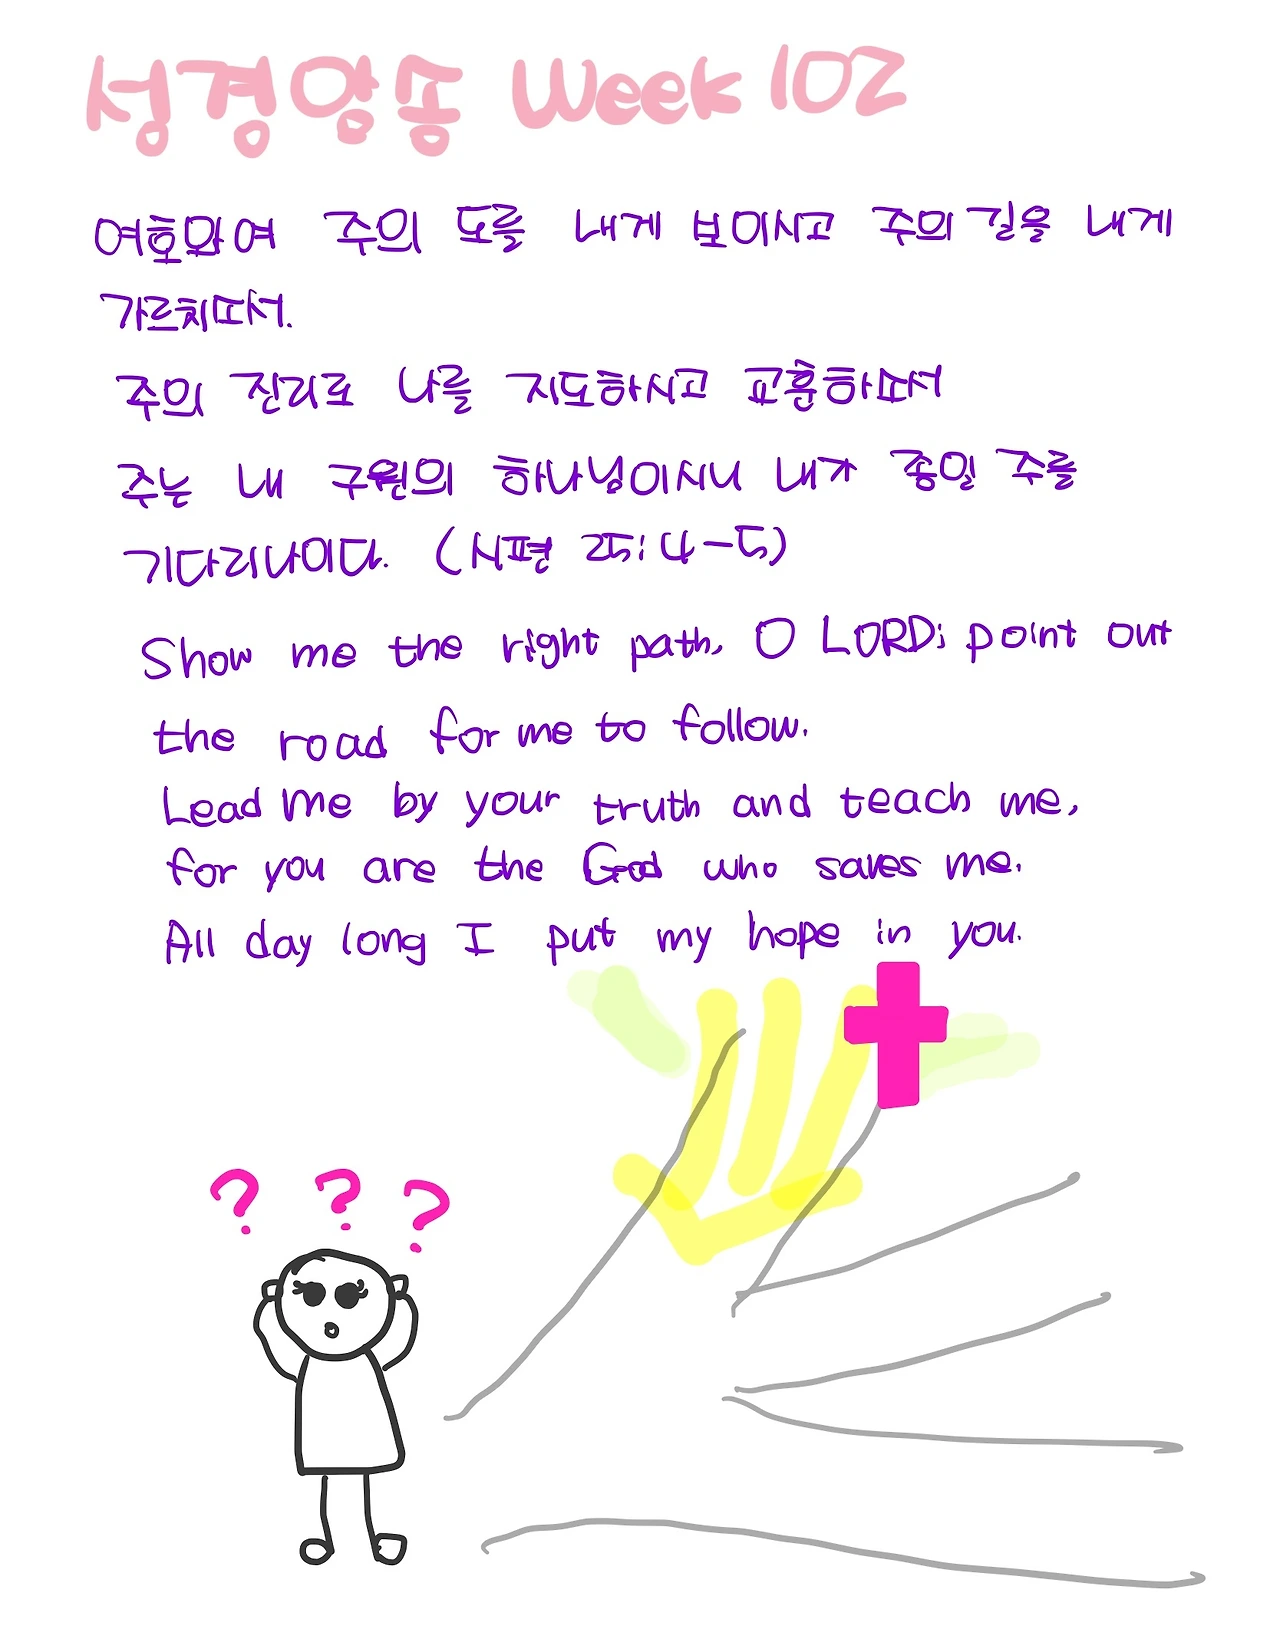 성경암송 Week 102
여호와여 주의 도를 내게 보이시고 주의 길을 내게
가르치따서.
주의 진리로 나를 지도하시고 교훈하따서
주는 내 구원의 하나님이시니 내가 종일 주를
기다리나이다. (시편 25:4-5)
Show me the right path, O LORD; point out
the road for me to follow.
Lead me by your truth and teach me,
for you are the God who saves me.
All day long I put my hope in you.
? ? ?